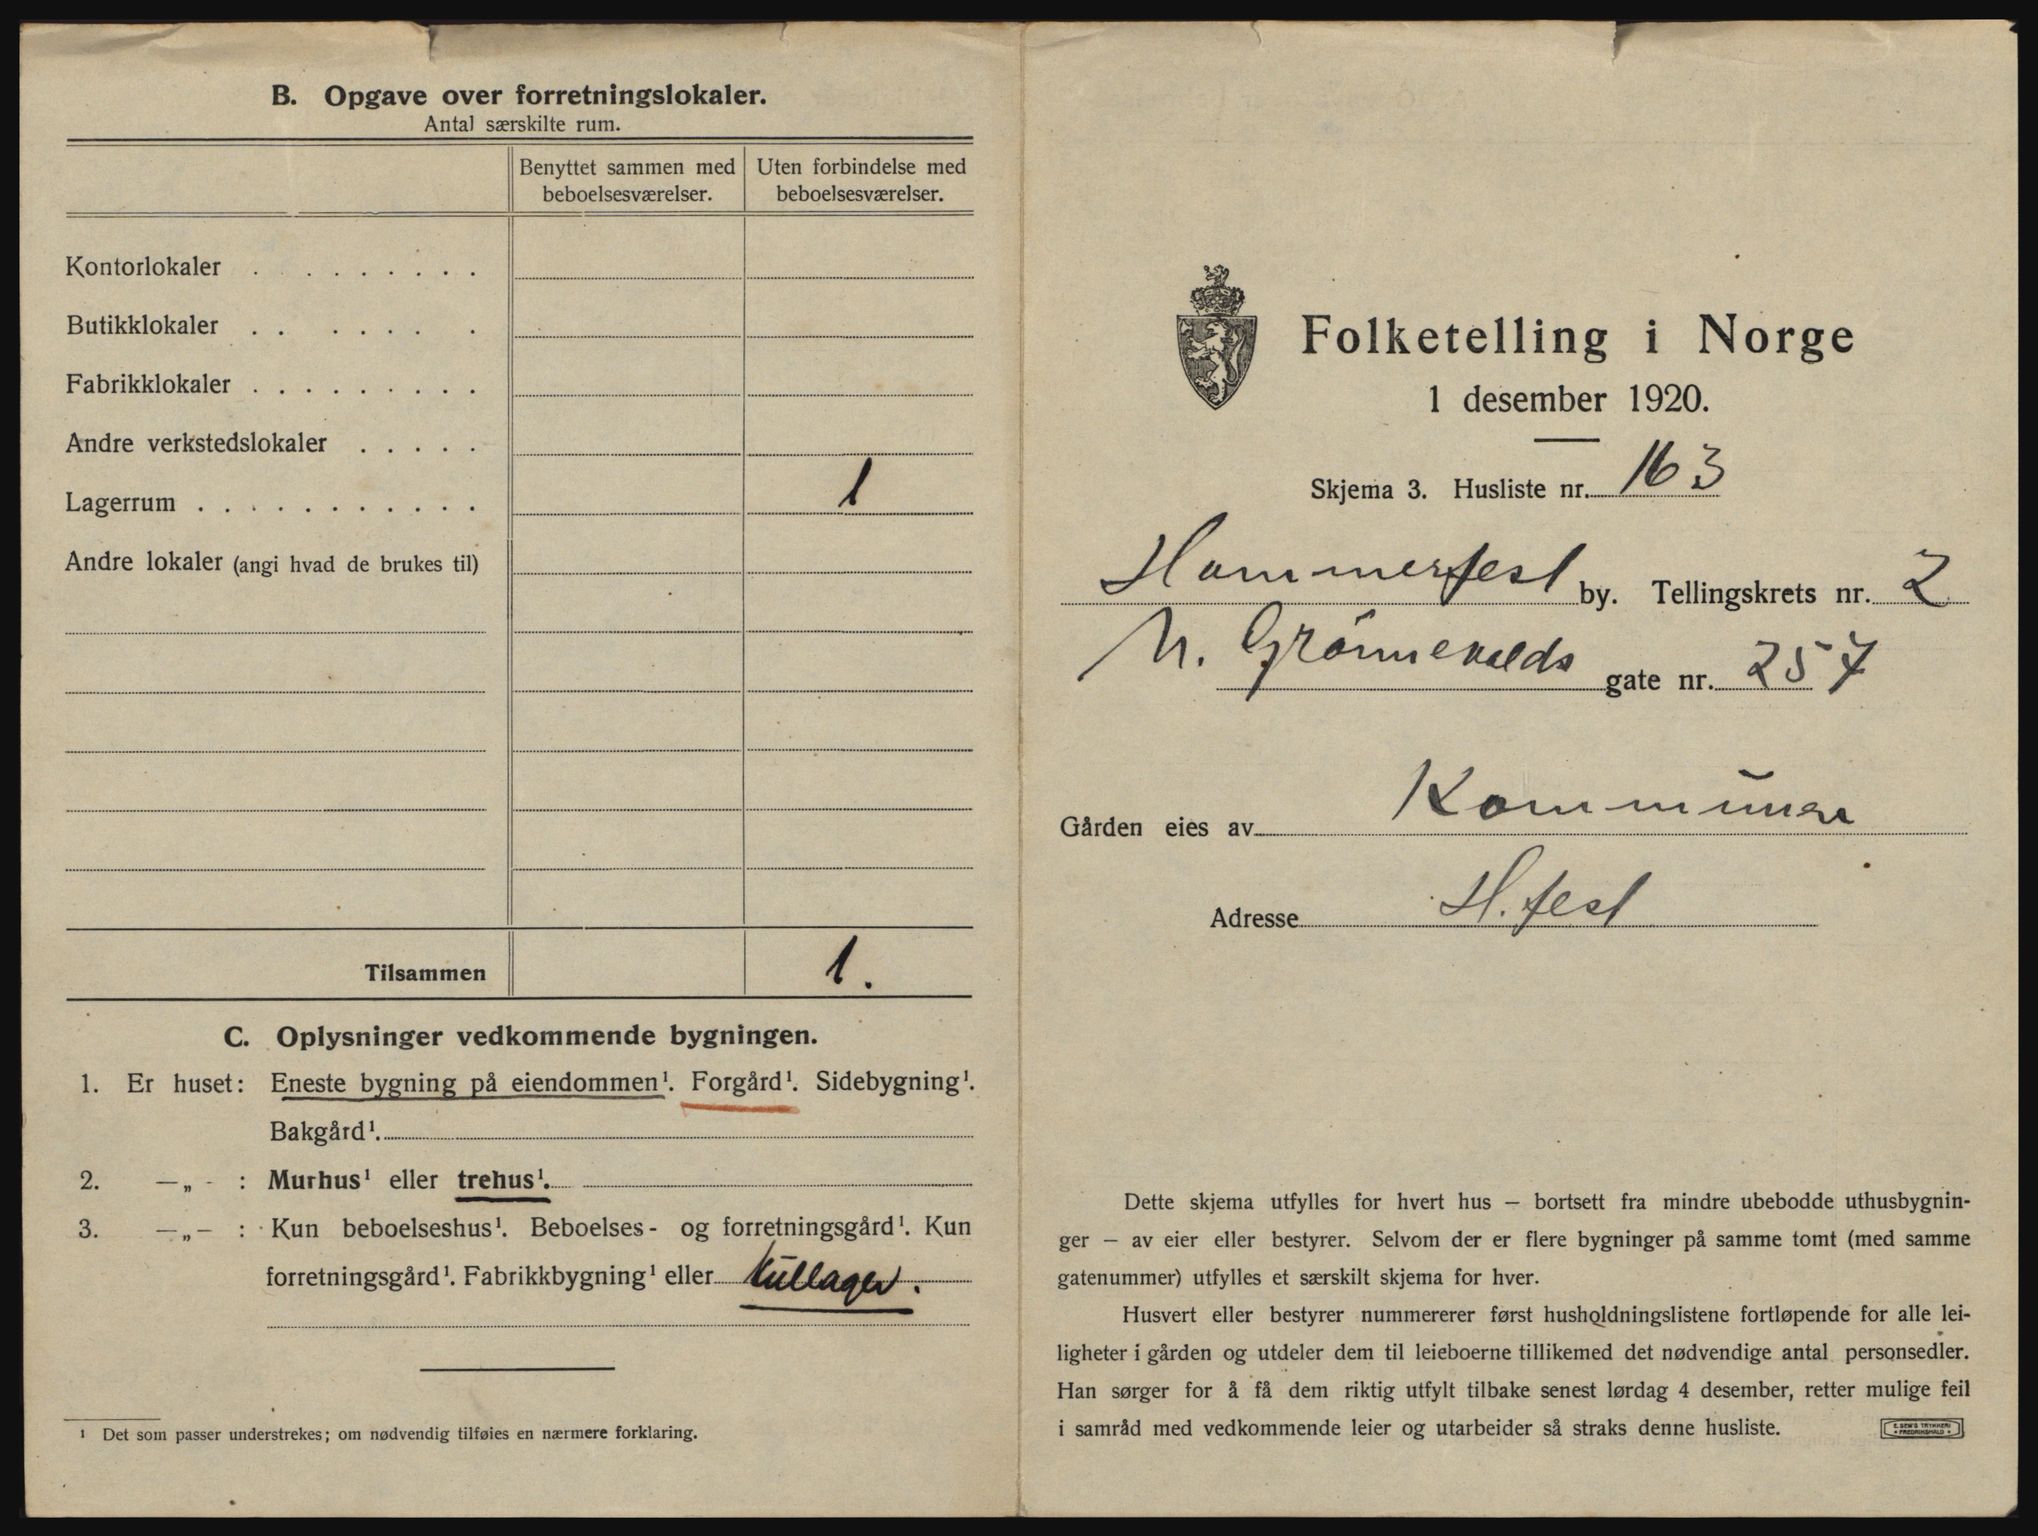 B. Opgave over forretningslokaler.
Antal særskilte rum.
Benyttet sammen med beboelsesværelser.
Uten forbindelse med beboelsesværelser.
Kontorlokaler . . . . . . . . .
Butikklokaler . . . . . . .
Fabrikklokaler . . . . . . . . .
Andre verkstedslokaler . . . . .
Lagerrum . . . . . . . . . . . 1
Andre lokaler (angi hvad de brukes til)
Tilsammen 1.
C. Oplysninger vedkommende bygningen.
1. Er huset: Eneste bygning på eiendommen¹. Forgård¹. Sidebygning¹.
Bakgård¹.
2. —„ - : Murhus¹ eller trehus¹.
3. —„— : Kun beboelseshus¹. Beboelses- og forretningsgård¹. Kun
forretningsgård¹. Fabrikkbygning¹ eller kullager.
¹ Det som passer understrekes; om nødvendig tilføies en nærmere forklaring.
Folketelling i Norge
1 desember 1920.
Skjema 3. Husliste nr. 163
Hammerfest by. Tellingskrets nr. 2
N. Grønnevolds gate nr. 257
Gården eies av Kommunen
Adresse H.fest
Dette skjema utfylles for hvert hus — bortsett fra mindre ubebodde uthusbygnin-
ger — av eier eller bestyrer. Selvom der er flere bygninger på samme tomt (med samme
gatenummer) utfylles et særskilt skjema for hver.
Husvert eller bestyrer nummererer først husholdningslistene fortløpende for alle lei-
ligheter i gården og utdeler dem til leieboerne tillikemed det nødvendige antal personsedler.
Han sørger for å få dem riktig utfylt tilbake senest lørdag 4 desember, retter mulige feil
i samråd med vedkommende leier og utarbeider så straks denne husliste.
E. SEM'S TRYKKERI
• FREDRIKSHALD •